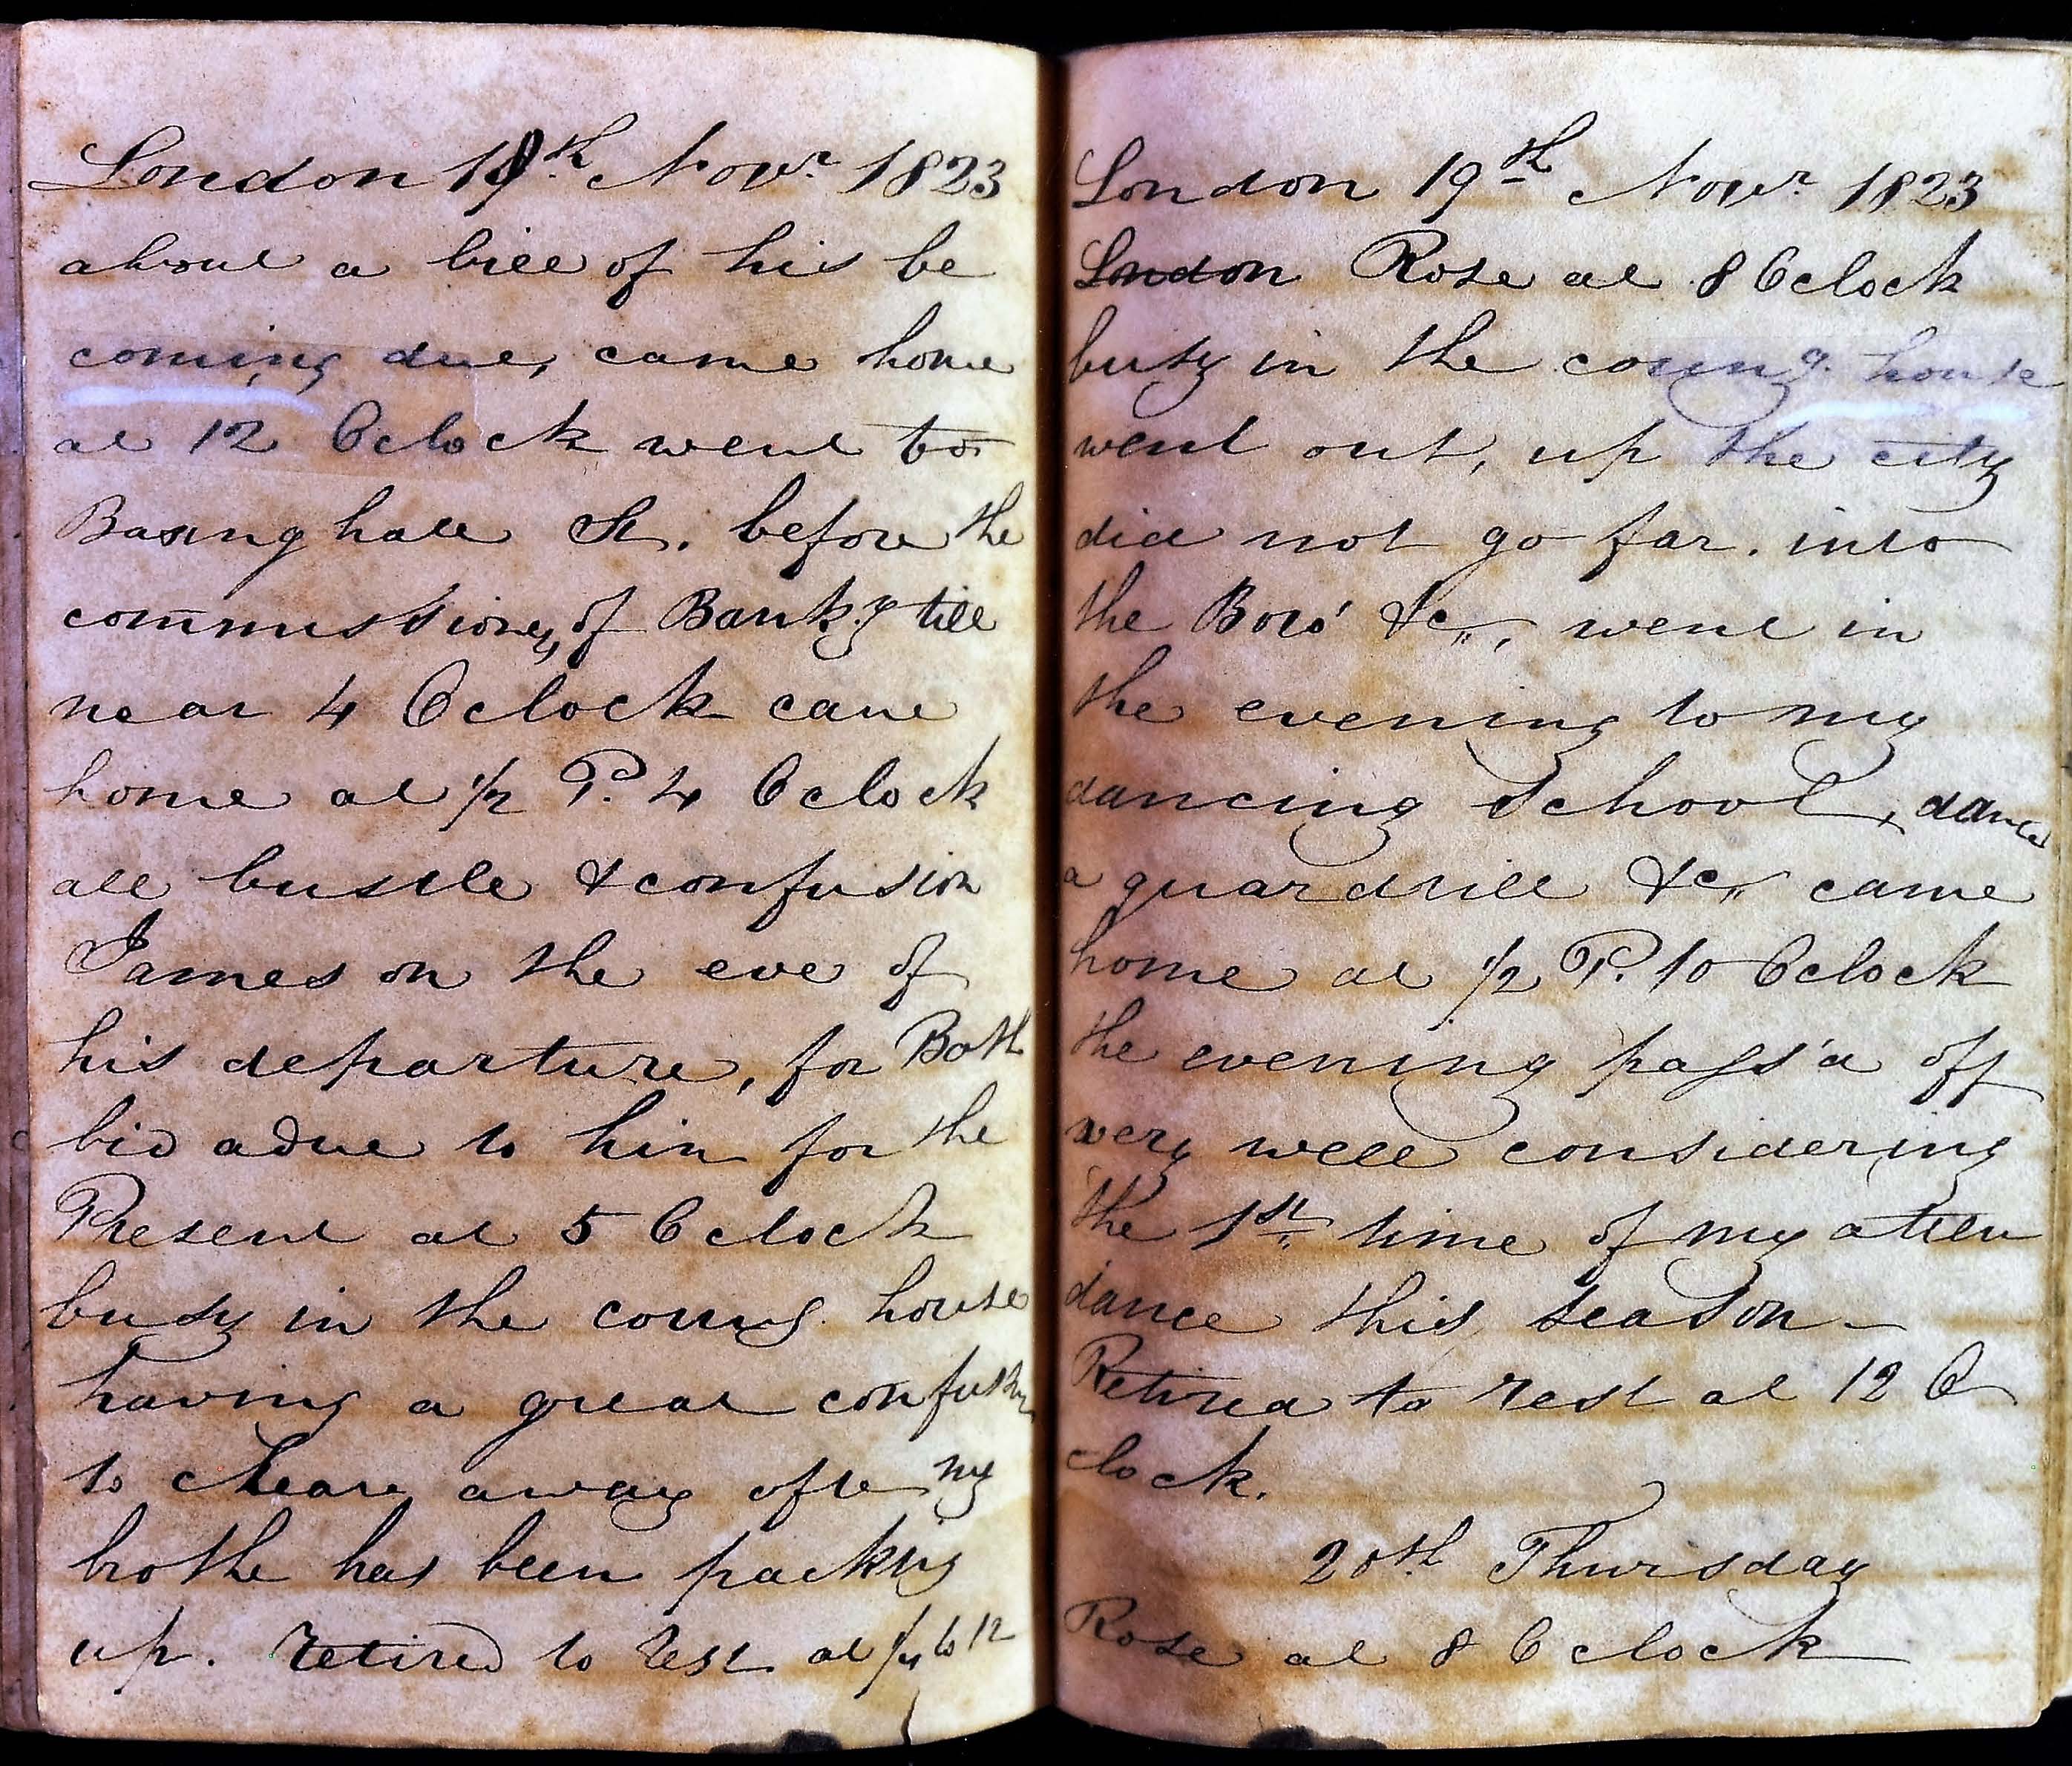 London 18th Novr. 1823
about a bill of his be
coming due, came home
at 12 Oclock went to
Basinghall St. before the
commissioners, of Bankcy till
near 4 Oclock came
home at 1/2 P. 4 Oclock
all bustle & confusion
James on the eve of
his departure, for Bath
bid adue to him for the
Present at 5 Oclock
busy in the coung. house
having a great confusion
to cleare away after my
brothe has been packing
up. retired to rest at 1/4 to 12
London 19th Novr. 1823
London Rose at 8 Oclock
busy in the coung. house
went out, up the city
did not go far. into
the Boro' &c,, went in
the evening to my
dancing School, dance
a guardrill &c,, came
home at 1/2 P. 10 Oclock
the evening pass'd off
very well considering
the 1st. time of my atten
dance this season -
Retired to rest at 12 O
clock.
20th. Thursday
Rose at 8 Oclock